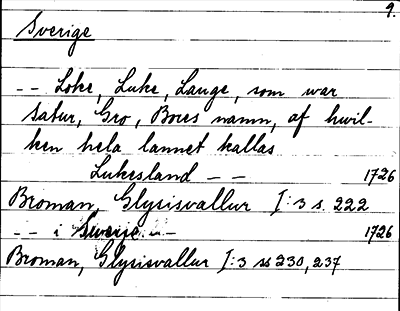 9.
Sverige
-- Loke, Luke, Lauge, som war
Satur, Gro, Bores namn, af hwil-
ken hela lannet kallas
Lukesland -- 1726
Broman, Glysisvallur I:3 s. 222
-- i Swerje -- 1726
Broman, Glysisvallur I:3 ss 230, 237